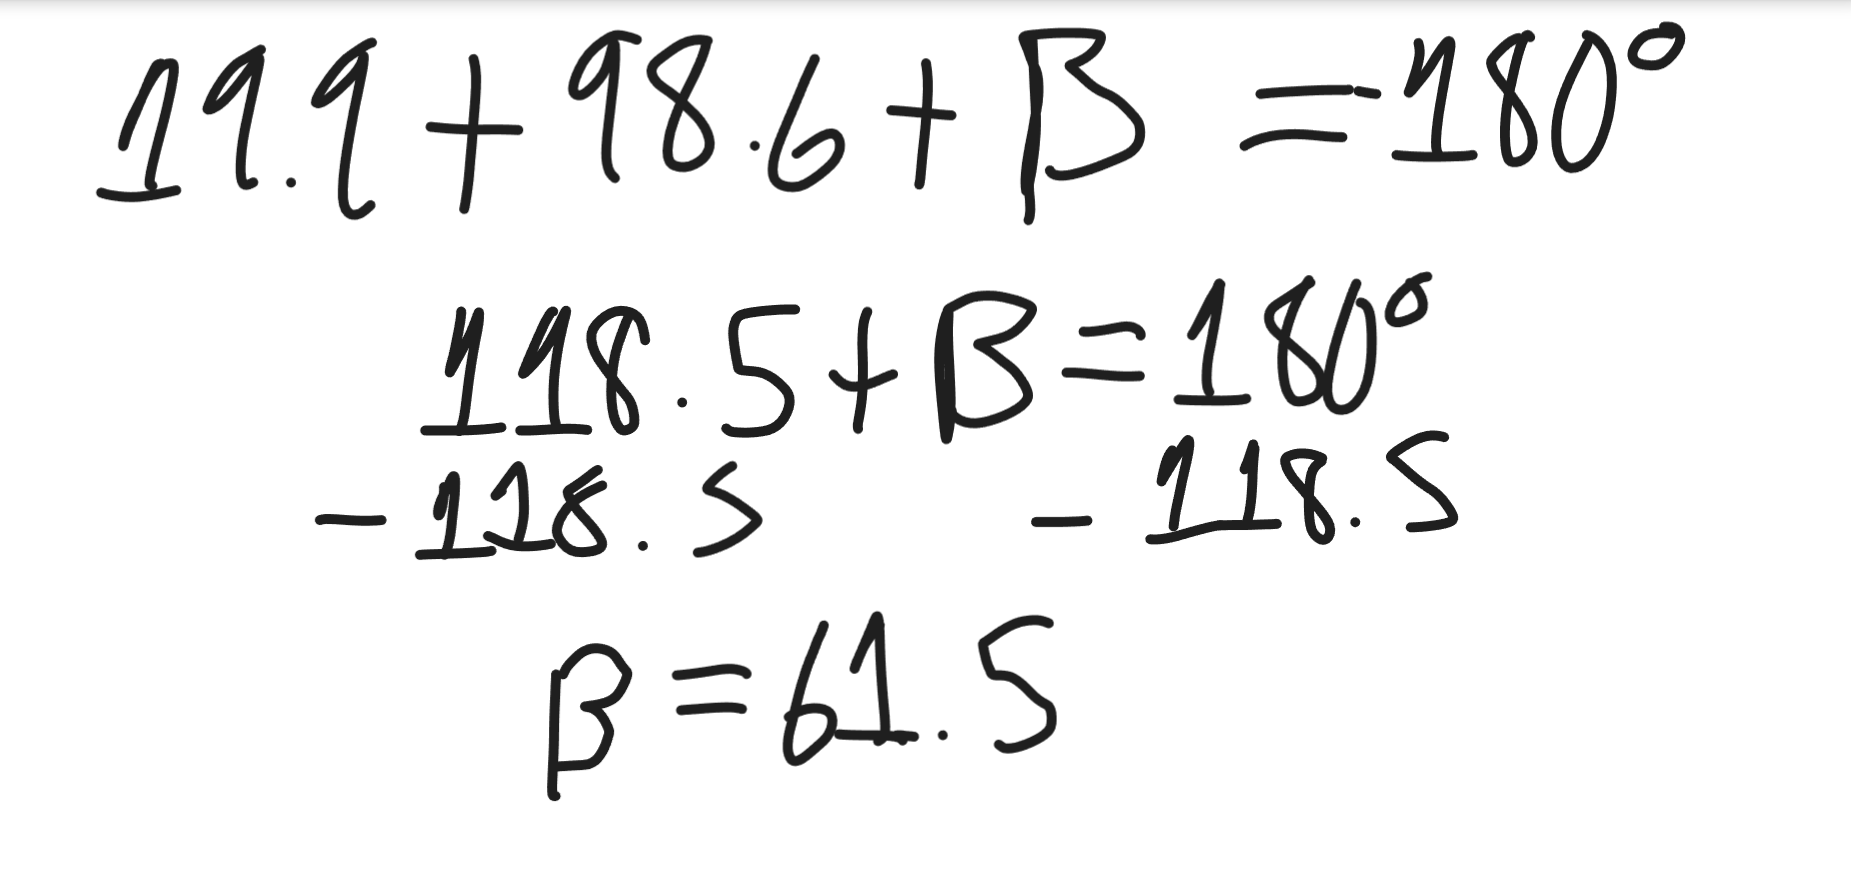 19.9 + 98.6 + β = 180°
118.5 + β = 180°
- 118.5 - 118.5
β = 61.5